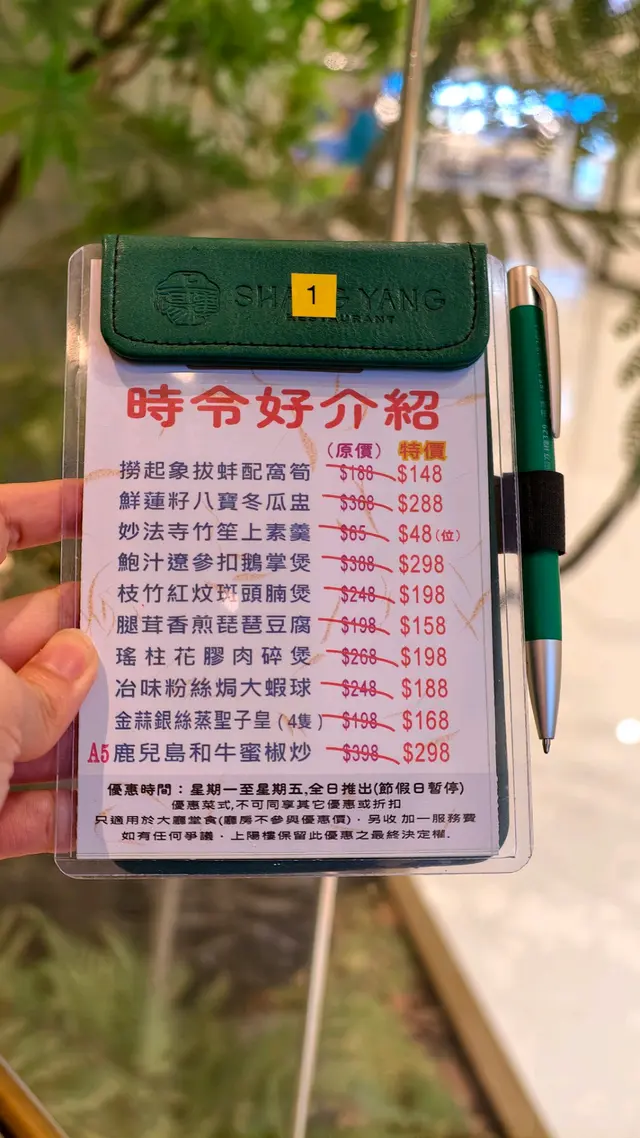 SHANG YANG
RESTAURANT
1
時令好介紹
(原價) 特價
撈起象拔蚌配窩筍 $188 $148
鮮蓮籽八寶冬瓜盅 $308 $288
妙法寺竹笙上素羹 $65 $48(位)
鮑汁遼參扣鵝掌煲 $388 $298
枝竹紅炆斑頭腩煲 $248 $198
腿茸香煎琵琶豆腐 $198 $158
瑤柱花膠肉碎煲 $268 $198
冶味粉絲焗大蝦球 $248 $188
金蒜銀絲蒸聖子皇(4隻) $198 $168
A5鹿兒島和牛蜜椒炒 $398 $298
優惠時間：星期一至星期五,全日推出(節假日暫停)
優惠菜式,不可同享其它優惠或折扣
只適用於大廳堂食(廳房不參與優惠價)．另收加一服務費
如有任何爭議．上陽樓保留此優惠之最終決定權.